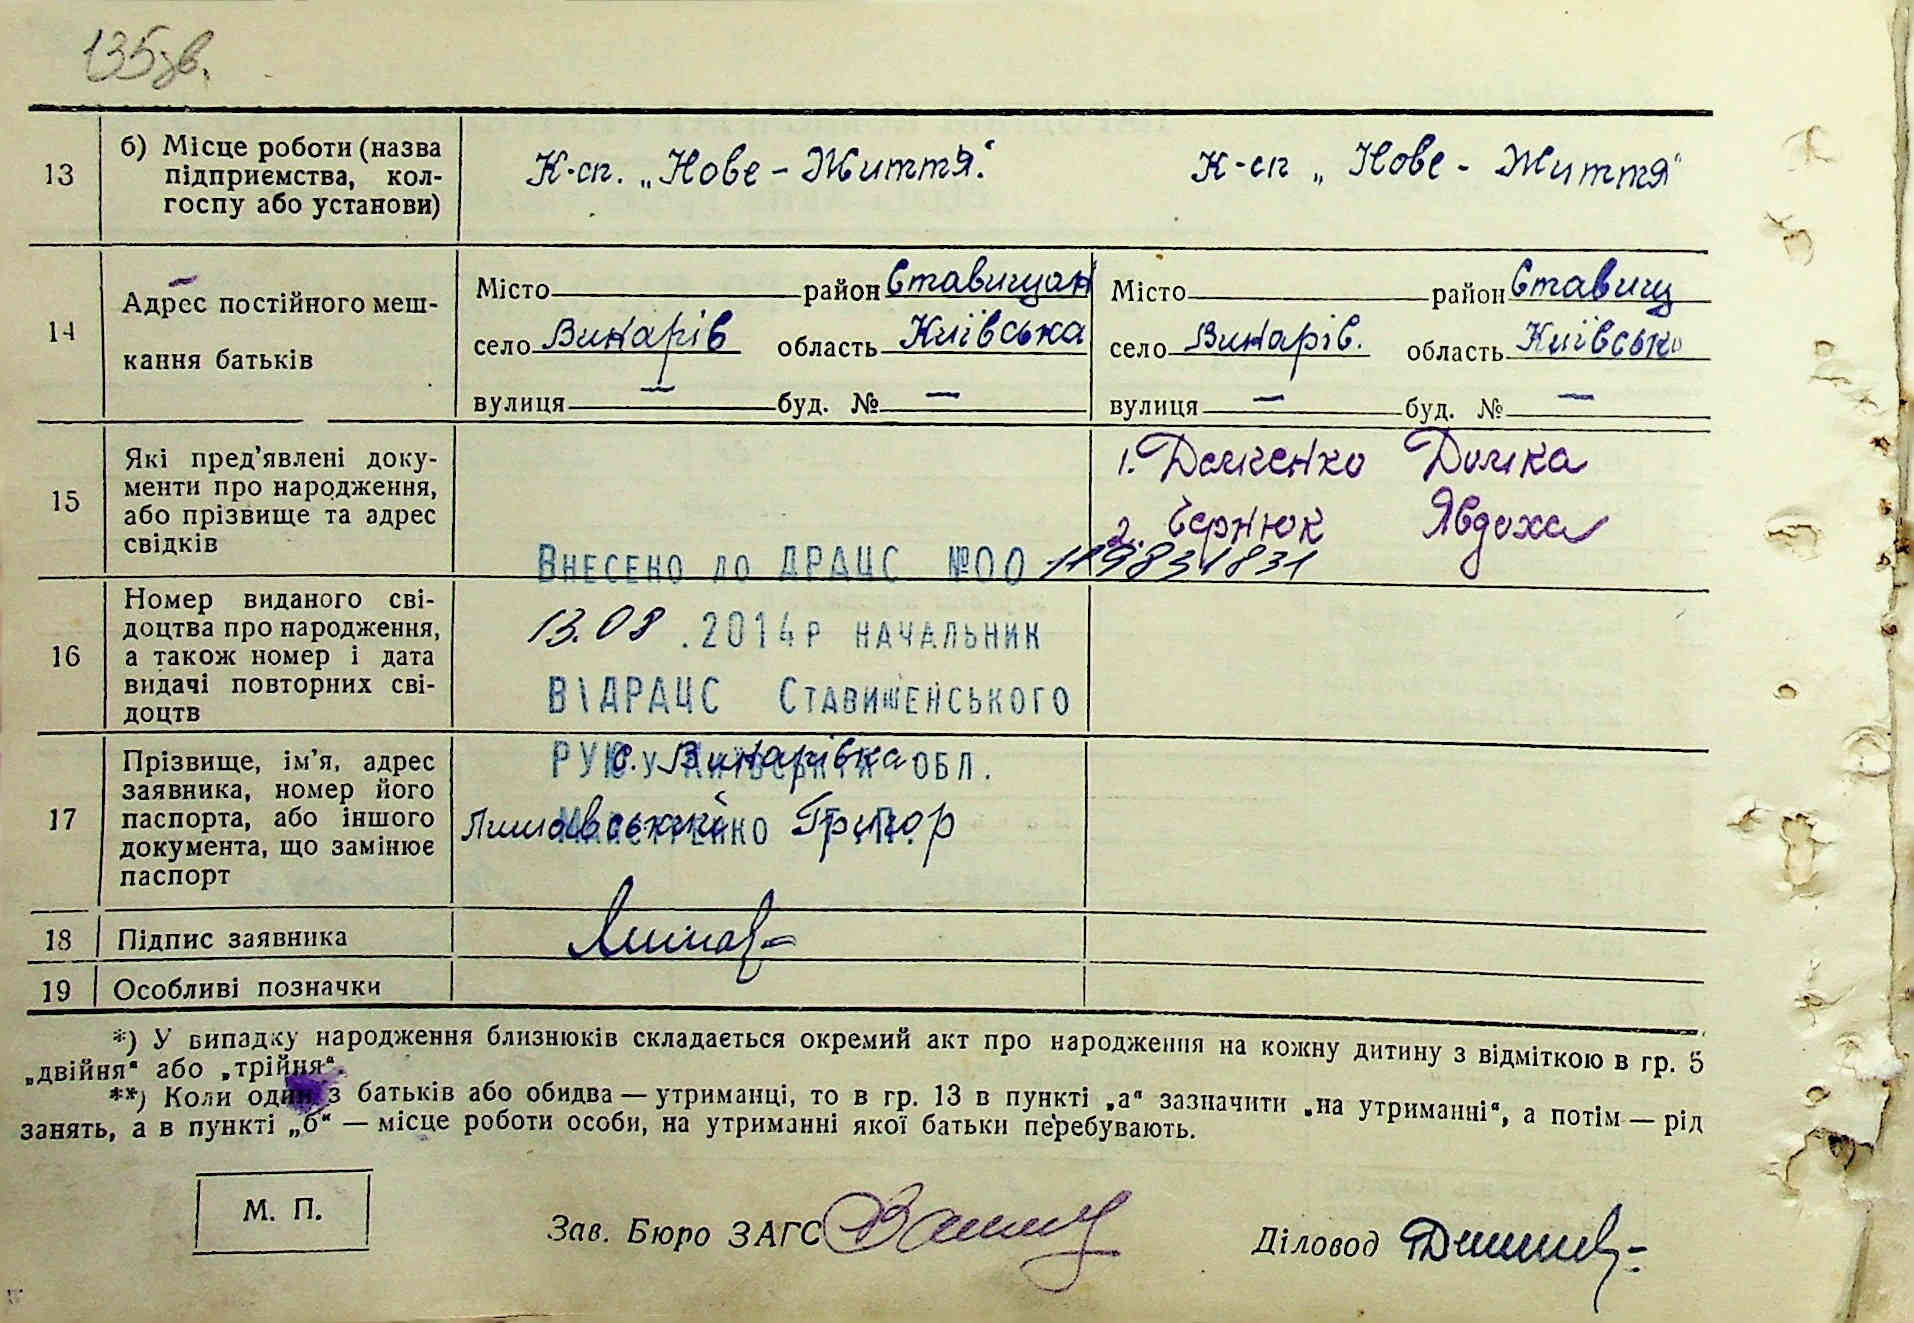 135зв.
13
б) Місце роботи (назва
підприємства, кол-
госпу або установи)
К-сп. „Нове - Життя."
К-сп „Нове - Життя"
14
Адрес постійного меш-
кання батьків
Місто район Ставищан
село Винарів область Київська
вулиця — буд. № —
Місто район Ставищ
село Винарів. область Київсько
вулиця — буд. № —
15
Які пред'явлені доку-
менти про народження,
або прізвище та адрес
свідків
1. Демченко Домка
2. Чернюк Явдоха
Внесено до ДРАЦС №00 119831831
16
Номер виданого сві-
доцтва про народження,
а також номер і дата
видачі повторних сві-
доцтв
13.08.2014р начальник
ВІДРАЦС Ставищенського
17
Прізвище, ім'я, адрес
заявника, номер його
паспорта, або іншого
документа, що замінює
паспорт
РУЮ у обл.
с. Винарівка
Григор
18
Підпис заявника
19
Особливі позначки
*) У випадку народження близнюків складається окремий акт про народження на кожну дитину з відміткою в гр. 5
„двійня" або „трійня".
**) Коли один з батьків або обидва — утриманці, то в гр. 13 в пункті „а" зазначити „на утриманні", а потім — рід
занять, а в пункті „б" — місце роботи особи, на утриманні якої батьки перебувають.
М. П.
Зав. Бюро ЗАГС
Діловод